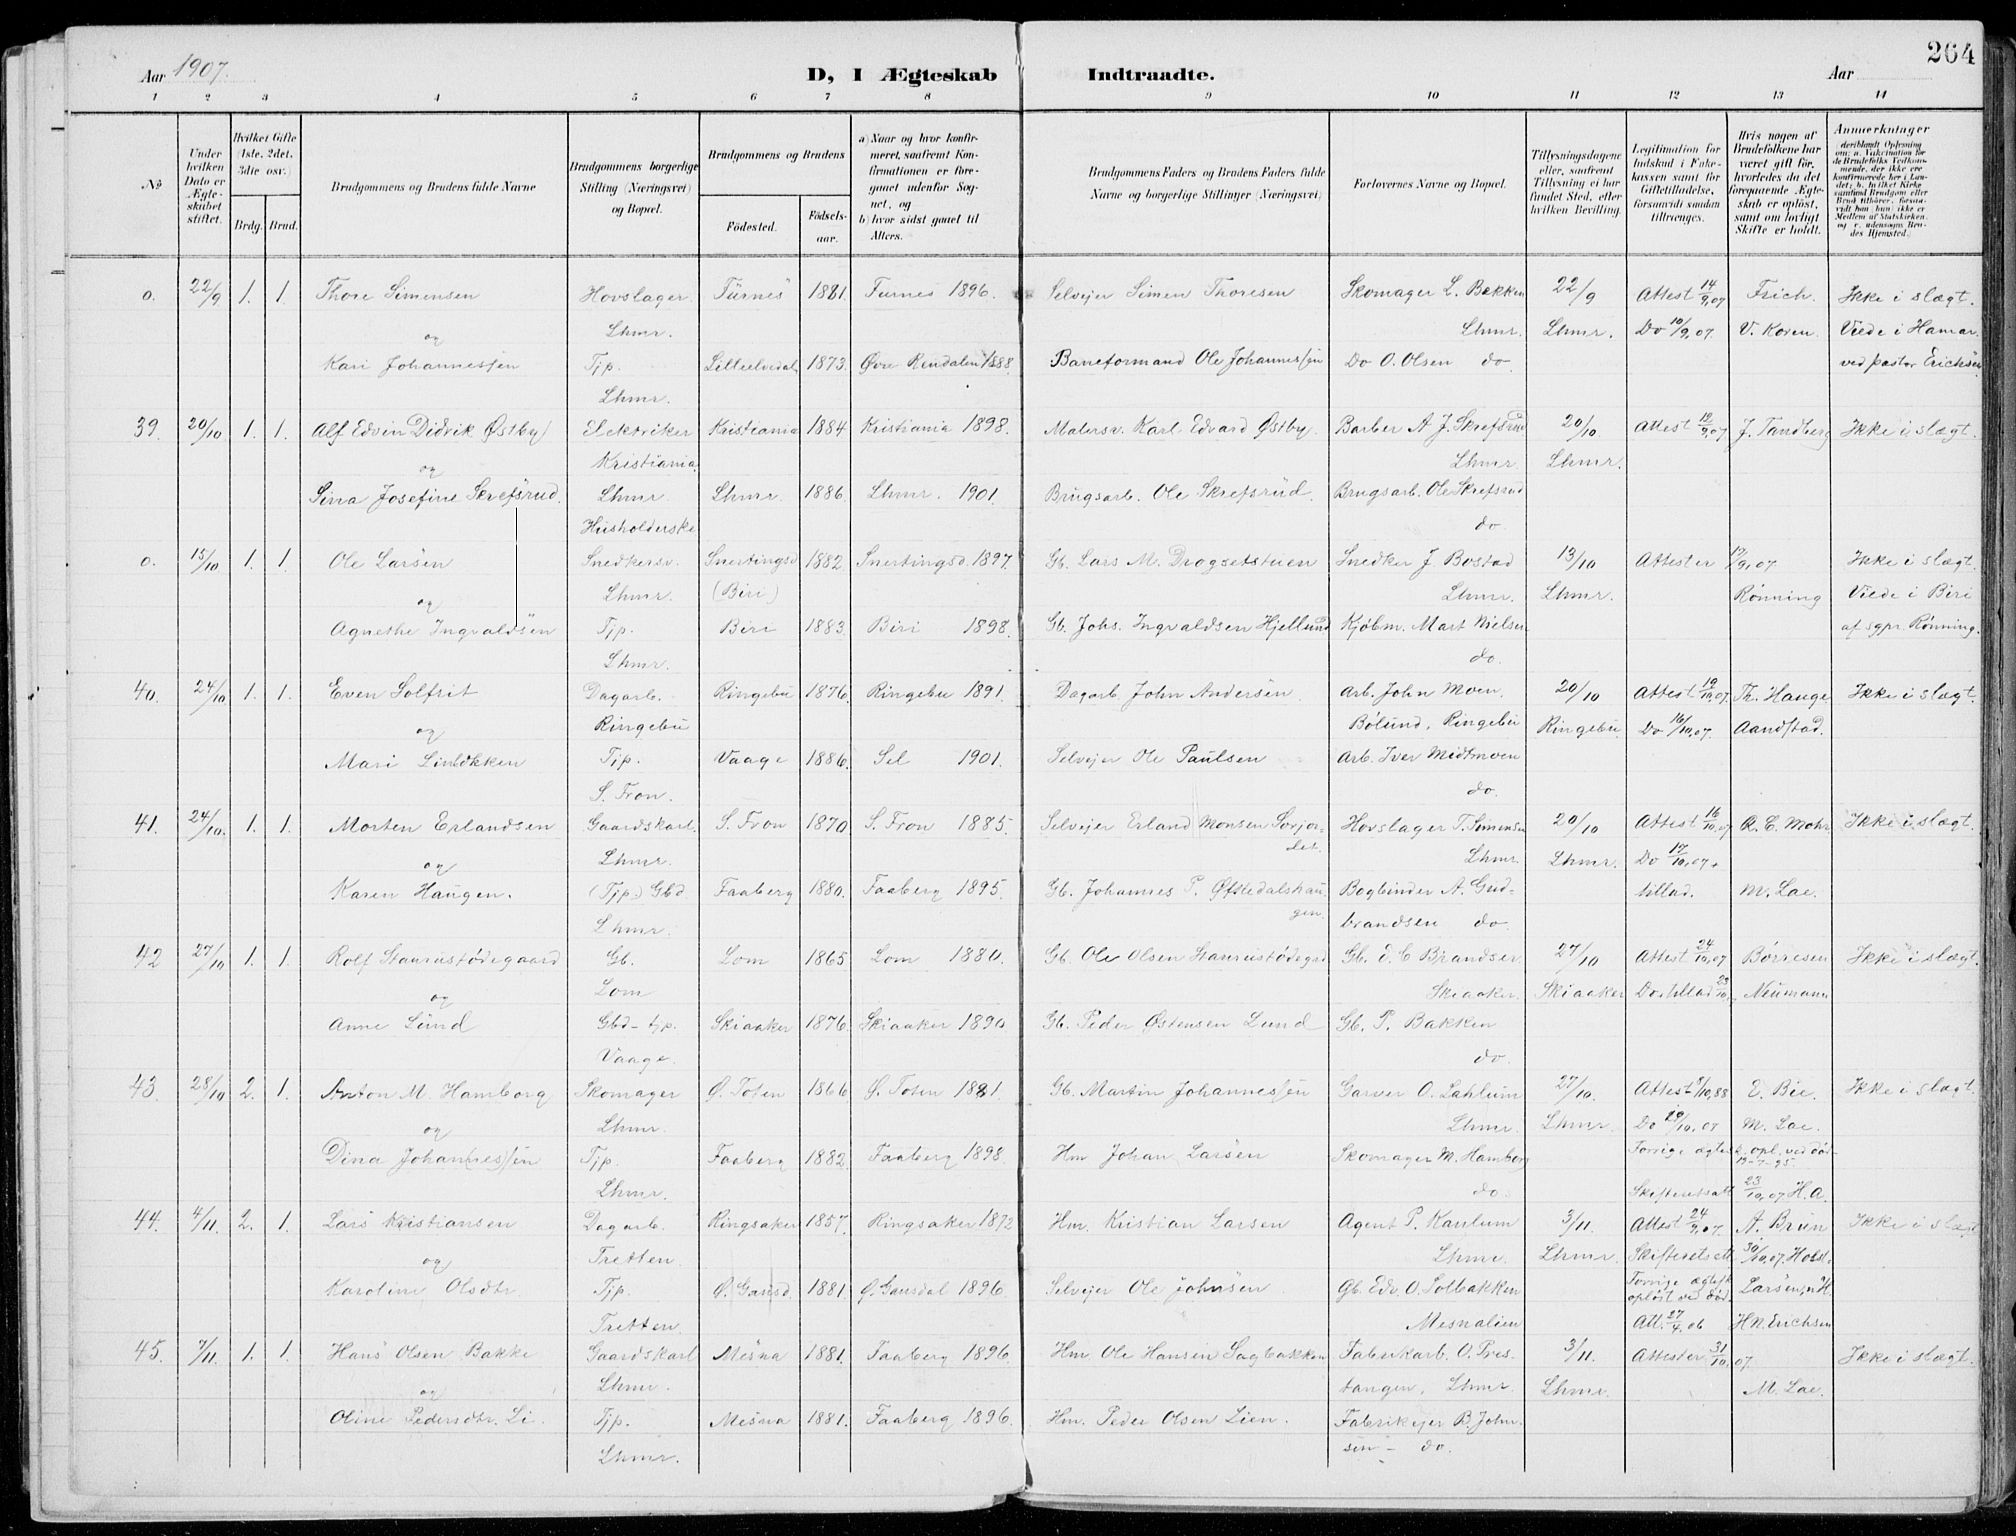 Aar 1907.
D, I Ægteskab Indtraadte.
Aar
264
1 2 3 4 5 6 7 8 9 10 11 12 13 14
No
Under hvilken Dato er Ægteskabet stiftet.
Hvilket Gifte (1ste, 2det, 3die osv.)
Brdg. Brud.
Brudgommens og Brudens fulde Navne
Brudgommens borgerlige Stilling (Næringsvei) og Bopæl.
Brudgommens og Brudens
Fødested. Fødselsaar.
a) Naar og hvor konfirmeret, saafremt Konfirmationen er foregaaet udenfor Sognet, og
b) hvor sidst gaaet til Alters.
Brudgommens Faders og Brudens Faders fulde Navne og borgerlige Stillinger (Næringsvei)
Forlovernes Navne og Bopæl.
Tillysningsdagene eller, saafremt Tillysning ei har fundet Sted, efter hvilken Bevilling.
Legitimation for Indskud i Enkekassen samt for Giftetilladelse, forsaavidt saadan tiltrænges.
Hvis nogen af Brudefolkene har været gift før, hvorledes da det foregaaende Ægteskab er opløst, samt om lovligt Skifte er holdt.
Anmerkninger
deriblandt Oplysning om: a. Vakcination for de Brudefolks Vedkommende, der ikke ere konfirmerede her i Landet; b. hvilket Kirkesamfund Brudgom eller Brud tilhører, forsaavidt han (hun) ikke er Medlem af Statskirken, og c. udensogns Brudes Hjemsted.
o. 22/9 1. 1. Thore Simensen Hovslager Furnes 1881. Furnes 1896. Selvejer Simen Thoresen Skomager L. Bakken 22/9 Attest 14/9,07 Frich. Ikke i slægt.
og Lhmr. Lhmr. Lhmr. Do 10/9,07. V. Koren. Viede i Hamar
Kari Johannessen Tjp. Lilleelvedal 1873. Øvre Rendalen 1888. Baneformand Ole Johannessen Do O. Olsen do ved pastor Erichsen
Lhmr.
39. 20/10 1. 1. Alf Edvin Didrik Østby Elektriker Kristiania 1884 Kristiania 1898. Malersv. Karl Edvard Østby. Barber A. J. Skrefsrud 20/10 Attest 12/9,07 J. Tandberg Ikke i slægt.
og Kristiania. Lhmr. Lhmr.
Sina Josefine Skrefsrud. Lhmr. Lhmr. 1886. Lhmr. 1901. Brugsarb. Ole Skrefsrud. Brugsarb. Ole Skrefsrud
Husholderske do.
o. 15/10 1. 1. Ole Larsen Snedkersv. Snertingsd 1882. Snertingsd. 1897. Gb. Lars M. Drogsetstuen Snedker J. Bostad 13/10 Attester 17/9,07 Ikke i slægt.
og Lhmr. (Biri) Lhmr. Lhmr. Rønning Viede i Biri
Agnethe Ingvaldsen Tjp. Biri 1883. Biri 1898. Gb. Johs. Ingvaldsen Hjellund Kjøbm. Mart Nielsen af sgpr. Rønning.
Lhmr. do.
40. 24/10 1. 1. Even Solfrit Dagarb. Ringebu 1876. Ringebu 1891. Dagarb John Andersen. Arb. John Moen. 20/10 Attest 19/10,07. Th. Hauge Ikke i slægt.
og Ringebu Bølund, Ringebu Ringebu. Do 16/10,07. Aandstad.
Mari Linløkken Tjp. Vaage 1886. Sel 1901. Selvejer Ole Paulsen Arb. Iver Midtmoen
S. Fron. do.
41. 24/10. 1. 1. Morten Erlandsen Gaardskarl. S. Fron 1870 S. Fron 1885. Selvejer Erland Monsen Sørjordet. Hovslager T. Simensen 20/10 Attest 16/10,07 R. C. Mohr Ikke i slægt.
og Lhmr. Lhmr. Lhmr. Do 17/10,07 +
Karen Haugen. (Tjp.) Gbd. Faaberg 1880. Faaberg 1895. Gb. Johannes P. Øfstedalshaugen. Bogbinder A. Gud- tillad. M. Lae.
Lhmr. brandsen do.
42 27/10 1. 1. Rolf Staurustødegaard Gb. Lom 1865 Lom 1880. Gb. Ole Olsen Staurustødegrd Gb. E. C Brandser 27/10 Attest 24/10,07 Børresen Ikke i slægt.
og Lom Skiaaker. Skiaaker Do + tillad 23/10 Neumann
Anne Lund Gbd - tjp. Skiaaker 1876. Skiaaker 1890 Gb. Peder Østensen Lund Gb. P. Bakken
Vaage. do.
43. 28/10 2. 1. Anton M. Hamborg Skomager Ø. Toten 1866 Ø. Toten 1881. Gb. Martin Johannessen Garver O. Lahlum 27/10. Attest 9/10,88 E. Bie. Ikke i slægt.
og Lhmr. Lhmr. Lhmr. Do 19/10,07 M. Lae.
Dina Johan(nes)sen Tjp. Faaberg 1882. Faaberg 1898. Hm Johan Larsen Skomager M. Hamborg Forrige ægtesk. opl. ved død 19-7-95.
Lhmr. do. Skifteretsatt 23/10,07 H.A.
44. 4/11. 2. 1. Lars Kristiansen Dagarb. Ringsaker 1857. Ringsaker 1872 Hm. Kristian Larsen Agent P. Kaulum 3/11. Attest 24/9,07. A. Bruun Ikke i slægt
og Tretten. Lhmr. Lhmr. Skifteretsatt 30/10,07 Holst-
Karoline Olsdtr. Tjp. Ø. Gausd. 1881. Ø. Gausdal 1896. Selvejer Ole Johnsen Gb. Edv. O. Solbakken Forrige ægtesk opløst ved død. Larsen,
Tretten. Mesnalien Att. 27/4,06 H N. Erichsen
45. 7/11. 1. 1. Hans Olsen Bakke Gaardskarl Mesna 1881. Faaberg 1896. Hm. Ole Hansen Sagbakken Fabrikarb. O. Pres- 3/11. Attester 31/10,07 Ikke i slægt.
og Lhmr. tangen, Lhmr. Lhmr. M. Lae.
Oline Pedersdtr. Li. Tjp. Mesna 1881. Faaberg 1896. Hm. Peder Olsen Lien. Fabrikejer B. John-
Lhmr. sen - do.